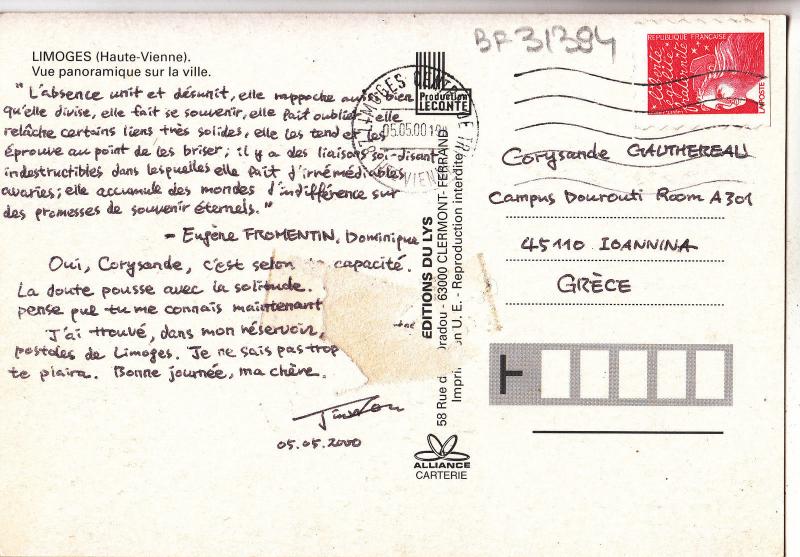 LIMOGES (Haute-Vienne).
Vue panoramique sur la ville.
"L'absence unit et désunit, elle rapproche aussi bien
qu'elle divise, elle fait se souvenir, elle fait oublier; elle
relâche certains liens très solides, elle les tend et les
éprouve au point de les briser; il y a des liaisons soi-disant
indestructibles dans lesquelles elle fait d'irrémédiables
avaries; elle accumule des mondes d'indifférence sur
des promesses de souvenir éternels."
- Eugène FROMENTIN, Dominique
Oui, Corysande, c'est selon capacité.
La doute pousse avec la solitude.
pense que tu me connais maintenant
J'ai trouvé, dans mon réservoir,
postales de Limoges. Je ne sais pas trop
te plaira. Bonne journée, ma chère.
05.05.2000
Production
LECONTE
LIMOGES
05.05.00
EDITIONS DU LYS
58 Rue d oradou - 63000 CLERMONT-FERRAND
Impri on U. E. - Reproduction interdite
ALLIANCE
CARTERIE
BF31394
REPUBLIQUE FRANÇAISE
liberté
égalité
fraternité
LA POSTE
Corysande GAUTHEREAU
Campus Dourouti Room A301
45110 IOANNINA
GRÈCE
T